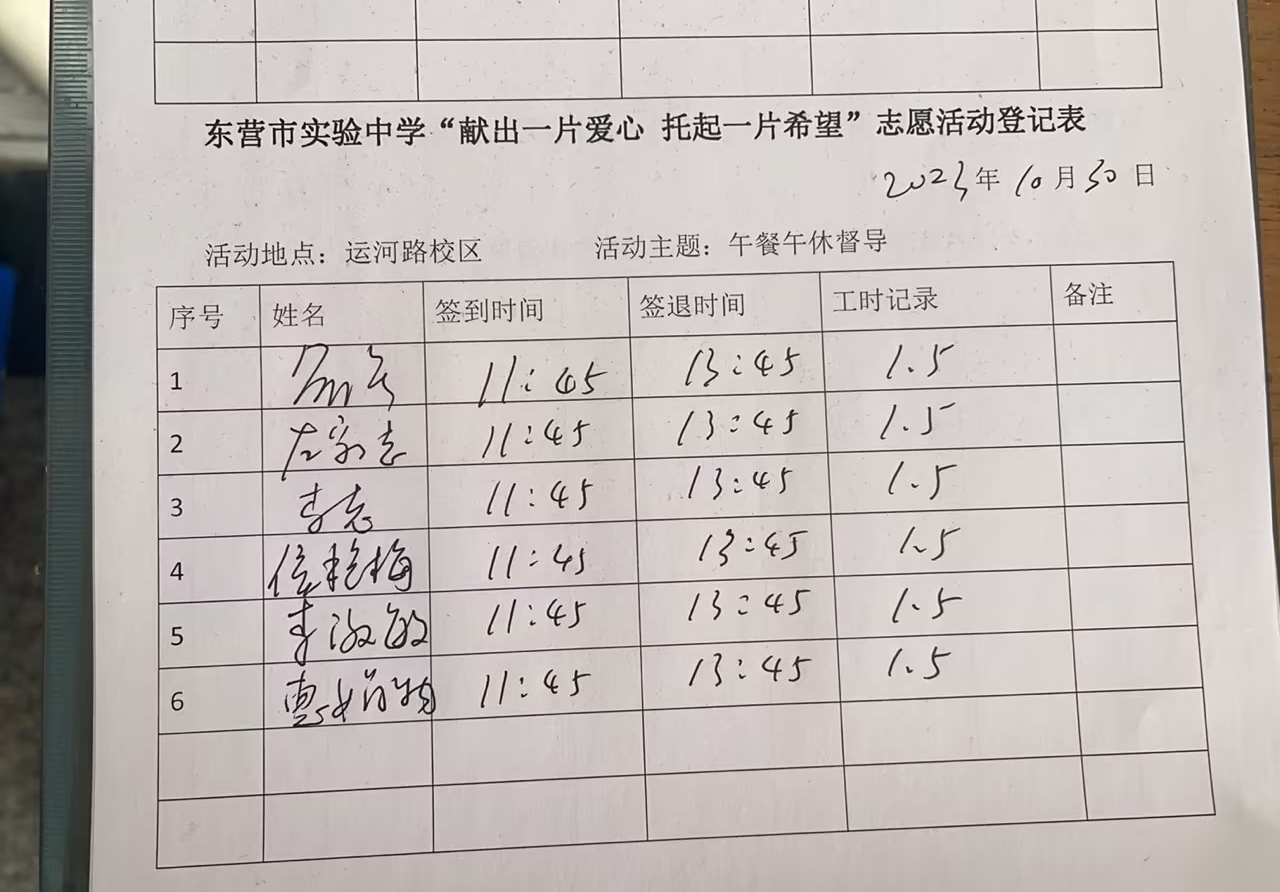 东营市实验中学“献出一片爱心 托起一片希望”志愿活动登记表
2023年10月30日
活动地点：运河路校区 活动主题：午餐午休督导
序号 姓名 签到时间 签退时间 工时记录 备注
1 11:45 13:45 1.5
2 11:45 13:45 1.5
3 李志 11:45 13:45 1.5
4 信艳梅 11:45 13:45 1.5
5 李淑敏 11:45 13:45 1.5
6 11:45 13:45 1.5